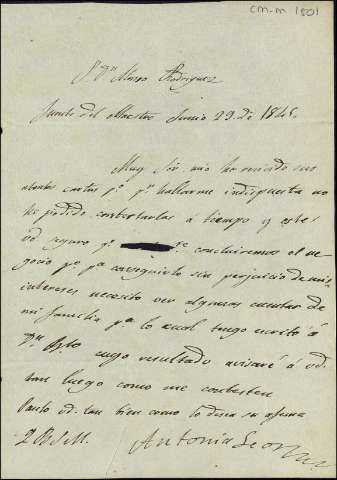 CM-M 1801
Sr Dn Marco Rodriguez
Fuente del Maestre Junio 29. de 1845.
Muy Sr. mio he recivido sus
atentas cartas pº pr hallarme indispuesta no
he podido contestarlas á tiempo y esté
vd seguro qe concluiremos el ne
gocio pº pª conseguirlo sin perjuicio de mis
intereses, necesito ver algunas cuentas de
mi familia pª lo cual tengo escrito á
Dn cuyo resultado avisaré á vd.
tan luego como me contesten
vd. tan bien como lo desea su afma
Q B S M.
Antonia Leon